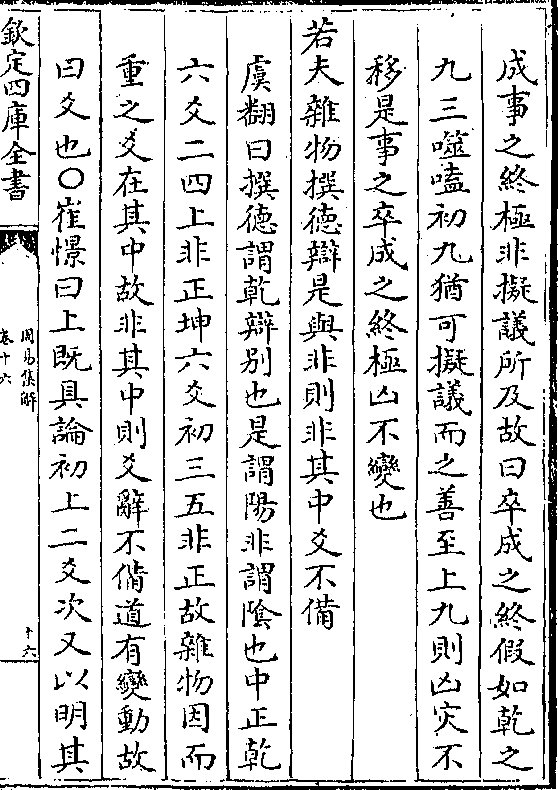 成事之終極非擬議所及故曰卒成之終假如乾之
九三噬嗑初九猶可擬議而之善至上九則凶灾不
移是事之卒成之終極凶不變也
若夫雜物撰德辯是與非則非其中爻不備
虞翻曰撰德謂乾辯别也是謂陽非謂隂也中正乾
六爻二四上非正坤六爻初三五非正故雜物因而
重之爻在其中故非其中則爻辭不備道有變動故
曰爻也○崔憬曰上既具論初上二爻次又以明其
欽定四庫全書
周易集解
卷十六
十六